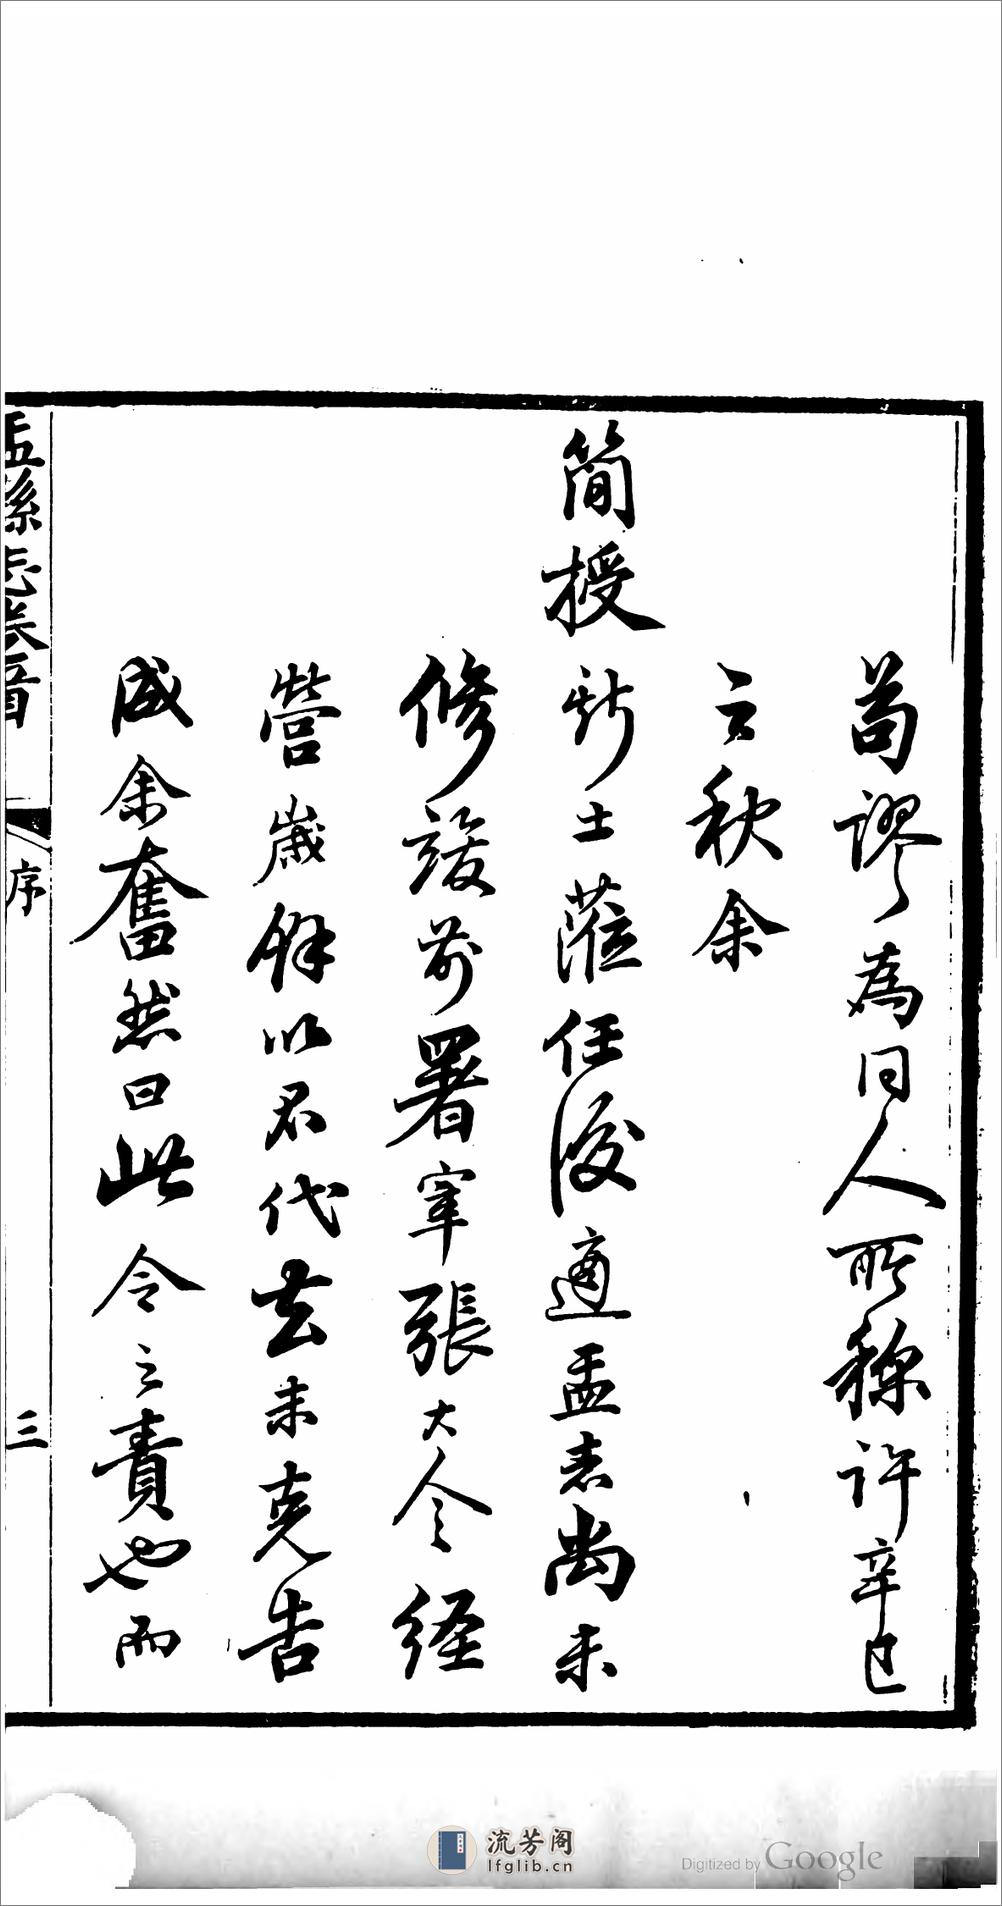 苟謬為同人所稱許辛巳
之秋余
簡授斯土蒞任後適盂志尚未
修竣前署宰張大令經
營歲餘以君代去未克告
成余奮然曰此令之責也而
盂縣志卷首
序
三
流芳阁
lfglib.cn
Digitized by Google